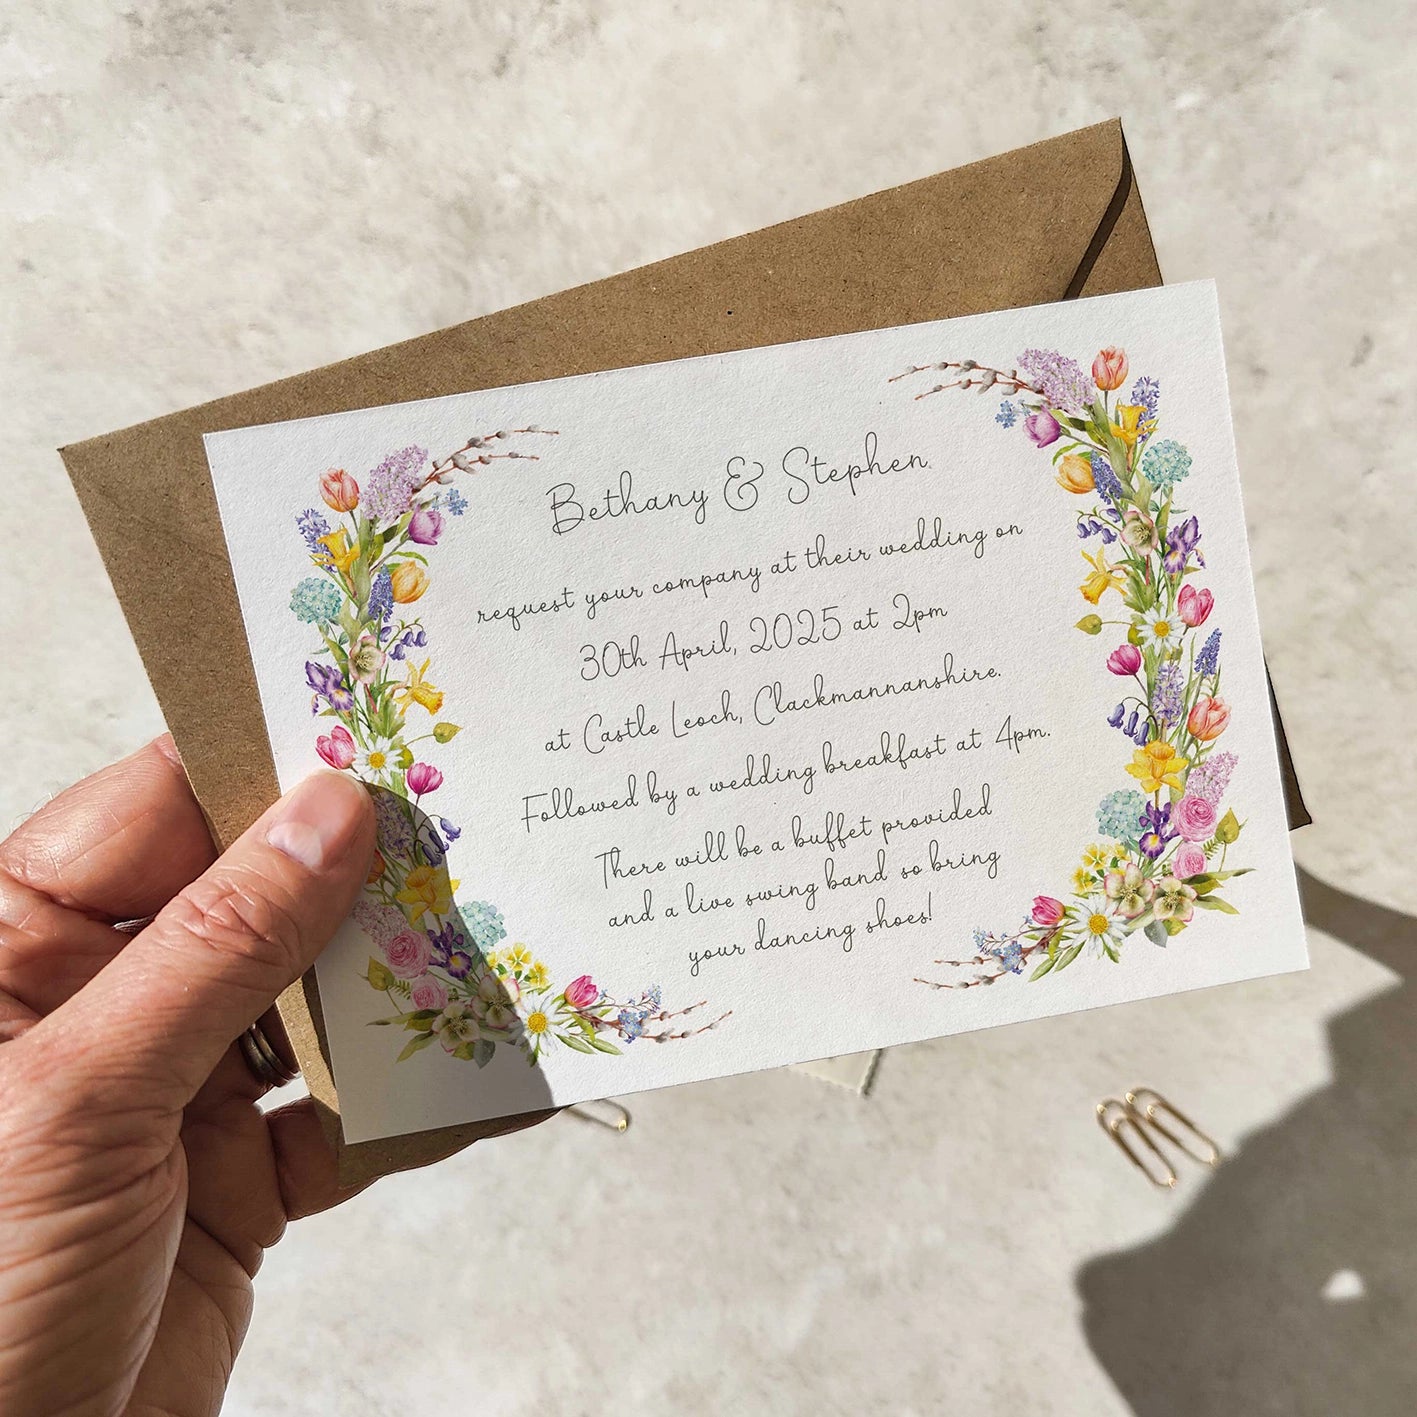 Bethany & Stephen
request your company at their wedding on
30th April, 2025 at 2pm
at Castle Leoch, Clackmannanshire.
Followed by a wedding breakfast at 4pm.
There will be a buffet provided
and a live swing band so bring
your dancing shoes!